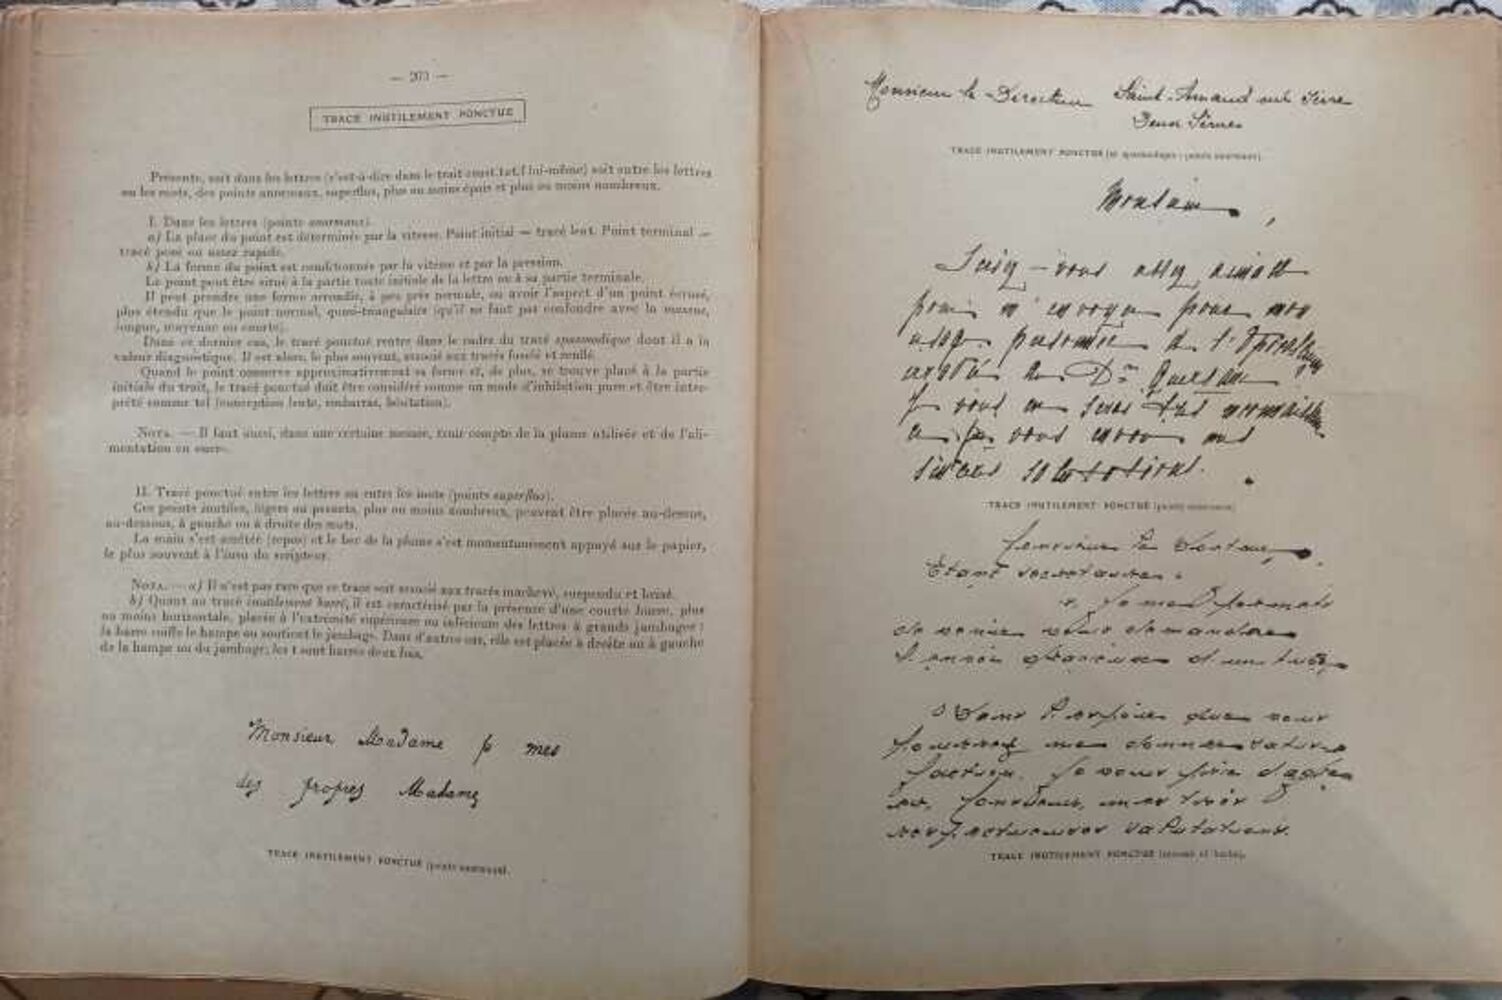 TRACÉ INUTILEMENT PONCTUÉ
Présente, soit dans les lettres (c'est-à-dire dans le trait constitutif lui-même) soit entre les lettres
ou les mots, des points anormaux, superflus, plus ou moins épais et plus ou moins nombreux.
I. Dans les lettres (points anormaux).
a) La place du point est déterminée par la vitesse. Point initial = tracé lent. Point terminal =
tracé posé ou assez rapide.
b) La forme du point est conditionnée par la vitesse et par la pression.
Le point peut être situé à la partie toute initiale de la lettre ou à sa partie terminale.
Il peut prendre une forme arrondie, à peu près normale, ou avoir l'aspect d'un point écrasé,
plus étendu que le point normal, quasi-triangulaire (qu'il ne faut pas confondre avec la massue,
longue, moyenne ou courte).
Dans ce dernier cas, le tracé ponctué rentre dans le cadre du tracé spasmodique dont il a la
valeur diagnostique. Il est alors, le plus souvent, associé aux tracés fuselé et renflé.
Quand le point conserve approximativement sa forme et, de plus, se trouve placé à la partie
initiale du trait, le tracé ponctué doit être considéré comme un mode d'inhibition pure et être inter-
prété comme tel (conception lente, embarras, hésitation).
NOTA. — Il faut aussi, dans une certaine mesure, tenir compte de la plume utilisée et de l'ali-
mentation en encre.
II. Tracé ponctué entre les lettres ou entre les mots (points superflus).
Ces points inutiles, légers ou pesants, plus ou moins nombreux, peuvent être placés au-dessus,
au-dessous, à gauche ou à droite des mots.
La main s'est arrêtée (repos) et le bec de la plume s'est momentanément appuyé sur le papier,
le plus souvent à l'insu du scripteur.
NOTA. — a) Il n'est pas rare que ce tracé soit associé aux tracés inachevé, suspendu et brisé.
b) Quant au tracé inutilement barré, il est caractérisé par la présence d'une courte barre, plus
ou moins horizontale, placée à l'extrémité supérieure ou inférieure des lettres à grands jambages :
la barre coiffe la hampe ou soutient le jambage. Dans d'autres cas, elle est placée à droite ou à gauche
de la hampe ou du jambage; les t sont barrés deux fois.
Monsieur Madame p mes
des propres Madame
TRACÉ INUTILEMENT PONCTUÉ (points anormaux).
Monsieur le Directeur Saint-Amand sur Sèvre
Deux Sèvres
TRACÉ INUTILEMENT PONCTUÉ et spasmodique (points anormaux).
Monsieur,
Seriez-vous assez aimable
pour m'envoyer pour mon
usage personnel de l'
du Dr
Je vous en serai très
vous envoie mes
sincères salutations.
TRACÉ INUTILEMENT PONCTUÉ (points anormaux)
Monsieur le Docteur,
Étant
Je me permets
de venir vous demander
l'envoi d'un tube
Dans l'espoir que vous
voudrez me donner satis
faction. Je vous prie d'agréer
Monsieur,
salutations.
TRACÉ INUTILEMENT PONCTUÉ